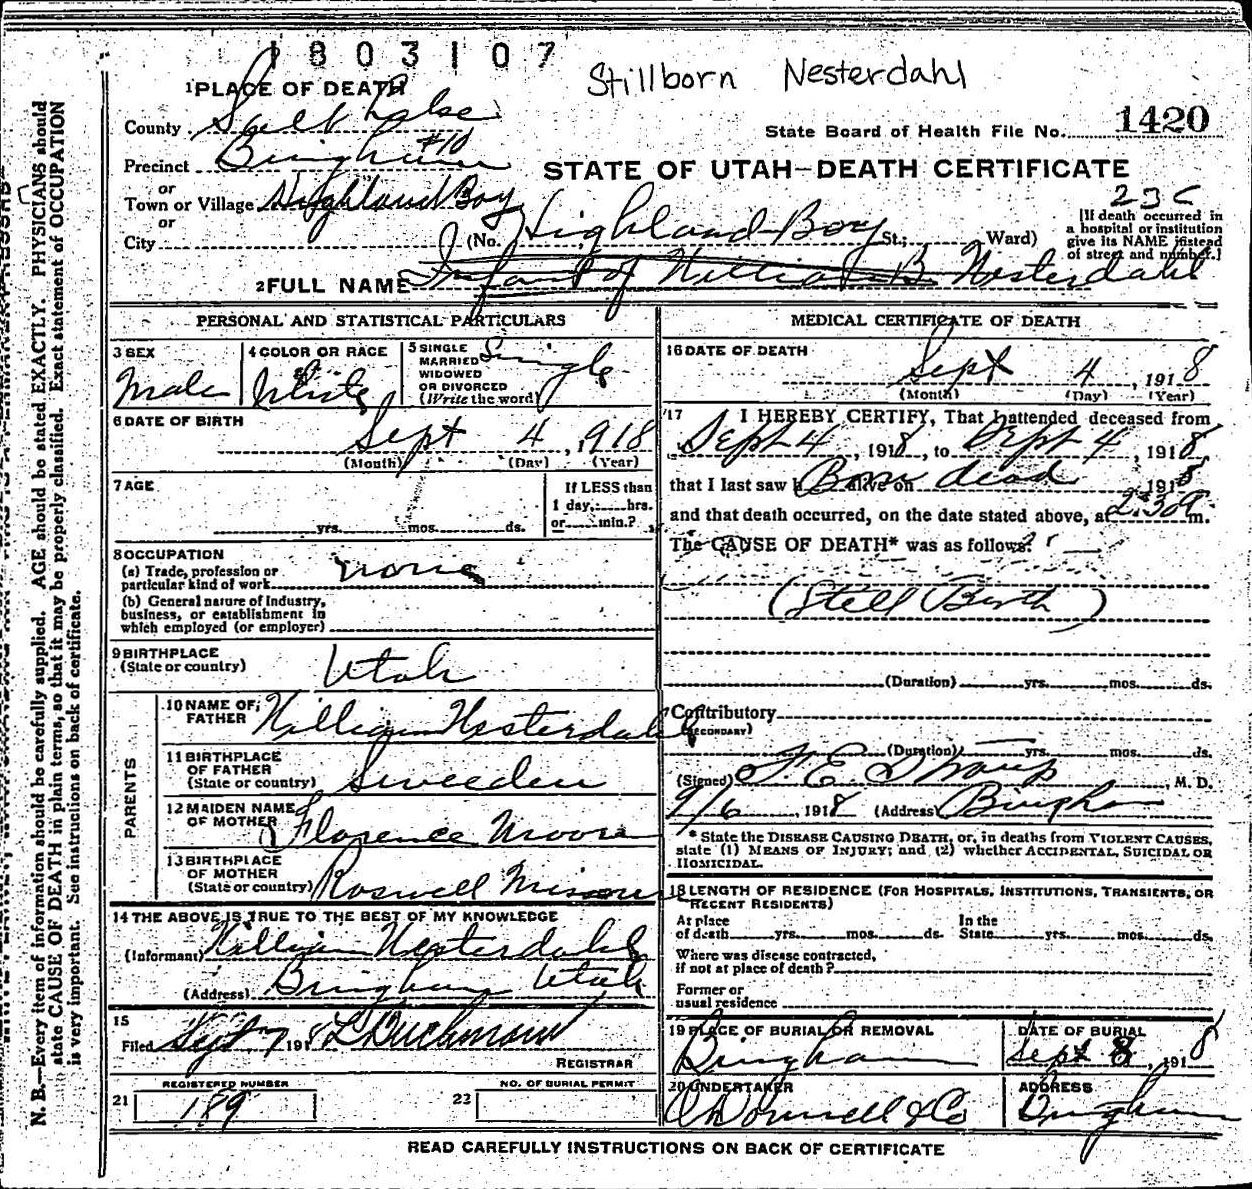 1803107
Stillborn Nesterdahl
1 PLACE OF DEATH
County Salt Lake
State Board of Health File No. 1420
Precinct Bingham #10
STATE OF UTAH—DEATH CERTIFICATE
or
Town or Village Highland Boy
23C
or
City (No. Highland Boy St.; Ward)
[If death occurred in
a hospital or institution
give its NAME instead
of street and number.]
2 FULL NAME Infant of William B. Nesterdahl
PERSONAL AND STATISTICAL PARTICULARS
3 SEX
Male
4 COLOR OR RACE
White
5 SINGLE
MARRIED
WIDOWED
OR DIVORCED
(Write the word)
Single
6 DATE OF BIRTH
Sept 4, 1918
(Month) (Day) (Year)
7 AGE
yrs. mos. ds.
If LESS than
1 day, hrs.
or min.?
8 OCCUPATION
(a) Trade, profession or
particular kind of work none
(b) General nature of industry,
business, or establishment in
which employed (or employer)
9 BIRTHPLACE
(State or country) Utah
PARENTS
10 NAME OF
FATHER William Nesterdahl
11 BIRTHPLACE
OF FATHER
(State or country) Sweeden
12 MAIDEN NAME
OF MOTHER Florence Moore
13 BIRTHPLACE
OF MOTHER
(State or country) Roswell Missouri
14 THE ABOVE IS TRUE TO THE BEST OF MY KNOWLEDGE
(Informant) William Nesterdahl
(Address) Bingham Utah
15
Filed Sept 7 1918
REGISTRAR
REGISTERED NUMBER
21 189
NO. OF BURIAL PERMIT
22
MEDICAL CERTIFICATE OF DEATH
16 DATE OF DEATH
Sept 4, 1918
(Month) (Day) (Year)
17 I HEREBY CERTIFY, That I attended deceased from
Sept 4, 1918, to Sept 4, 1918
that I last saw h alive on Born dead, 1918
and that death occurred, on the date stated above, at 2:30 m.
The CAUSE OF DEATH* was as follows:
(Still Birth)
(Duration) yrs. mos. ds.
Contributory
(SECONDARY)
(Duration) yrs. mos. ds.
(Signed) F. E. Straup, M. D.
9/6, 1918 (Address) Bingham
* State the DISEASE CAUSING DEATH, or, in deaths from VIOLENT CAUSES,
state (1) MEANS OF INJURY; and (2) whether ACCIDENTAL, SUICIDAL OR
HOMICIDAL.
18 LENGTH OF RESIDENCE (FOR HOSPITALS, INSTITUTIONS, TRANSIENTS, OR
RECENT RESIDENTS)
At place
of death yrs. mos. ds.
In the
State yrs. mos. ds.
Where was disease contracted,
if not at place of death?
Former or
usual residence
19 PLACE OF BURIAL OR REMOVAL
Bingham
DATE OF BURIAL
Sept 8, 1918
20 UNDERTAKER
O'Donnell & Co
ADDRESS
Bingham
READ CAREFULLY INSTRUCTIONS ON BACK OF CERTIFICATE
N. B.—Every item of information should be carefully supplied. AGE should be stated EXACTLY. PHYSICIANS should
state CAUSE OF DEATH in plain terms, so that it may be properly classified. Exact statement of OCCUPATION
is very important. See instructions on back of certificate.